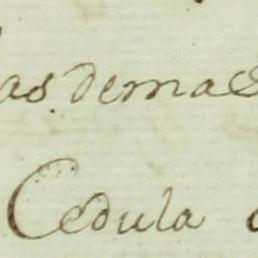 as demas
Cedula